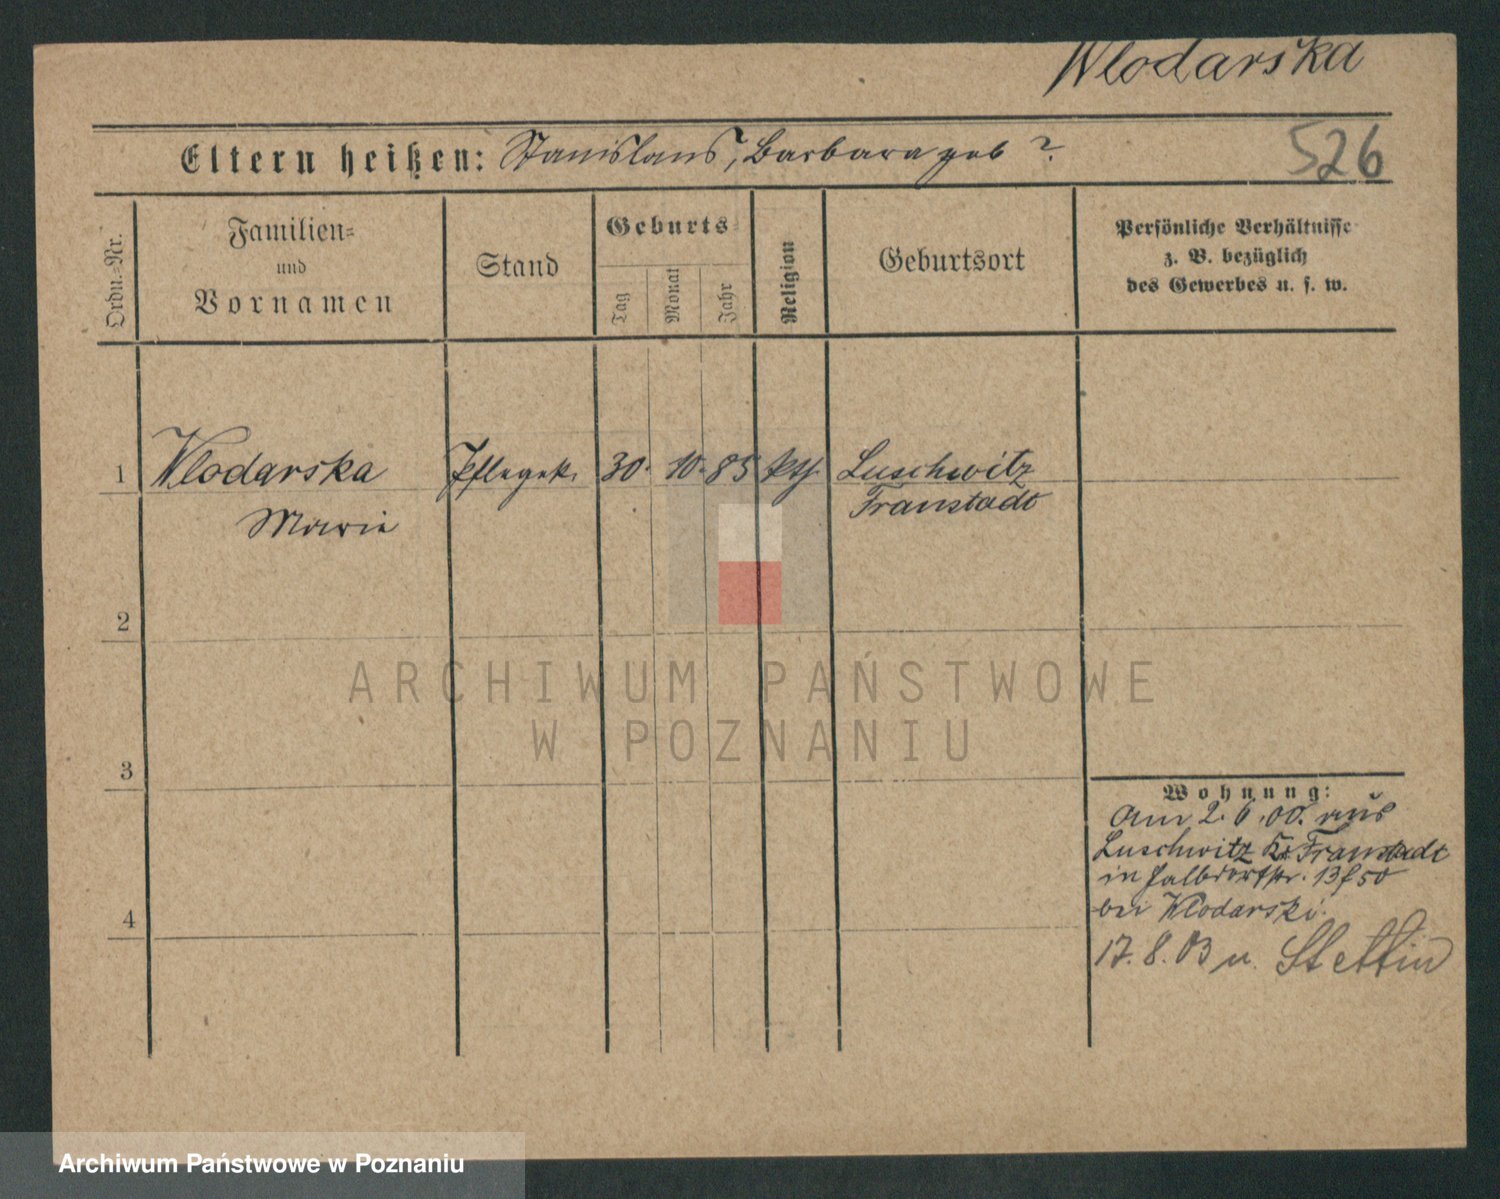 Wlodarska
Eltern heißen: Stanislaus, Barbara geb ?
526
Ordn.-Nr.
Familien-
und
Vornamen
Stand
Geburts-
Tag
Monat
Jahr
Religion
Geburtsort
Persönliche Verhältnisse
z. B. bezüglich
des Gewerbes u. s. w.
1 Wlodarska Pflegek. 30. 10. 85 kth. Luschwitz
Marie Fraustadt
2
3
4
Wohnung:
Am 2. 6. 00. aus
Luschwitz Kr. Fraustadt
in Halbdorfstr. 13 f 50
bei Wlodarski.
17. 8. 03 n. Stettin
ARCHIWUM PAŃSTWOWE
W POZNANIU
Archiwum Państwowe w Poznaniu